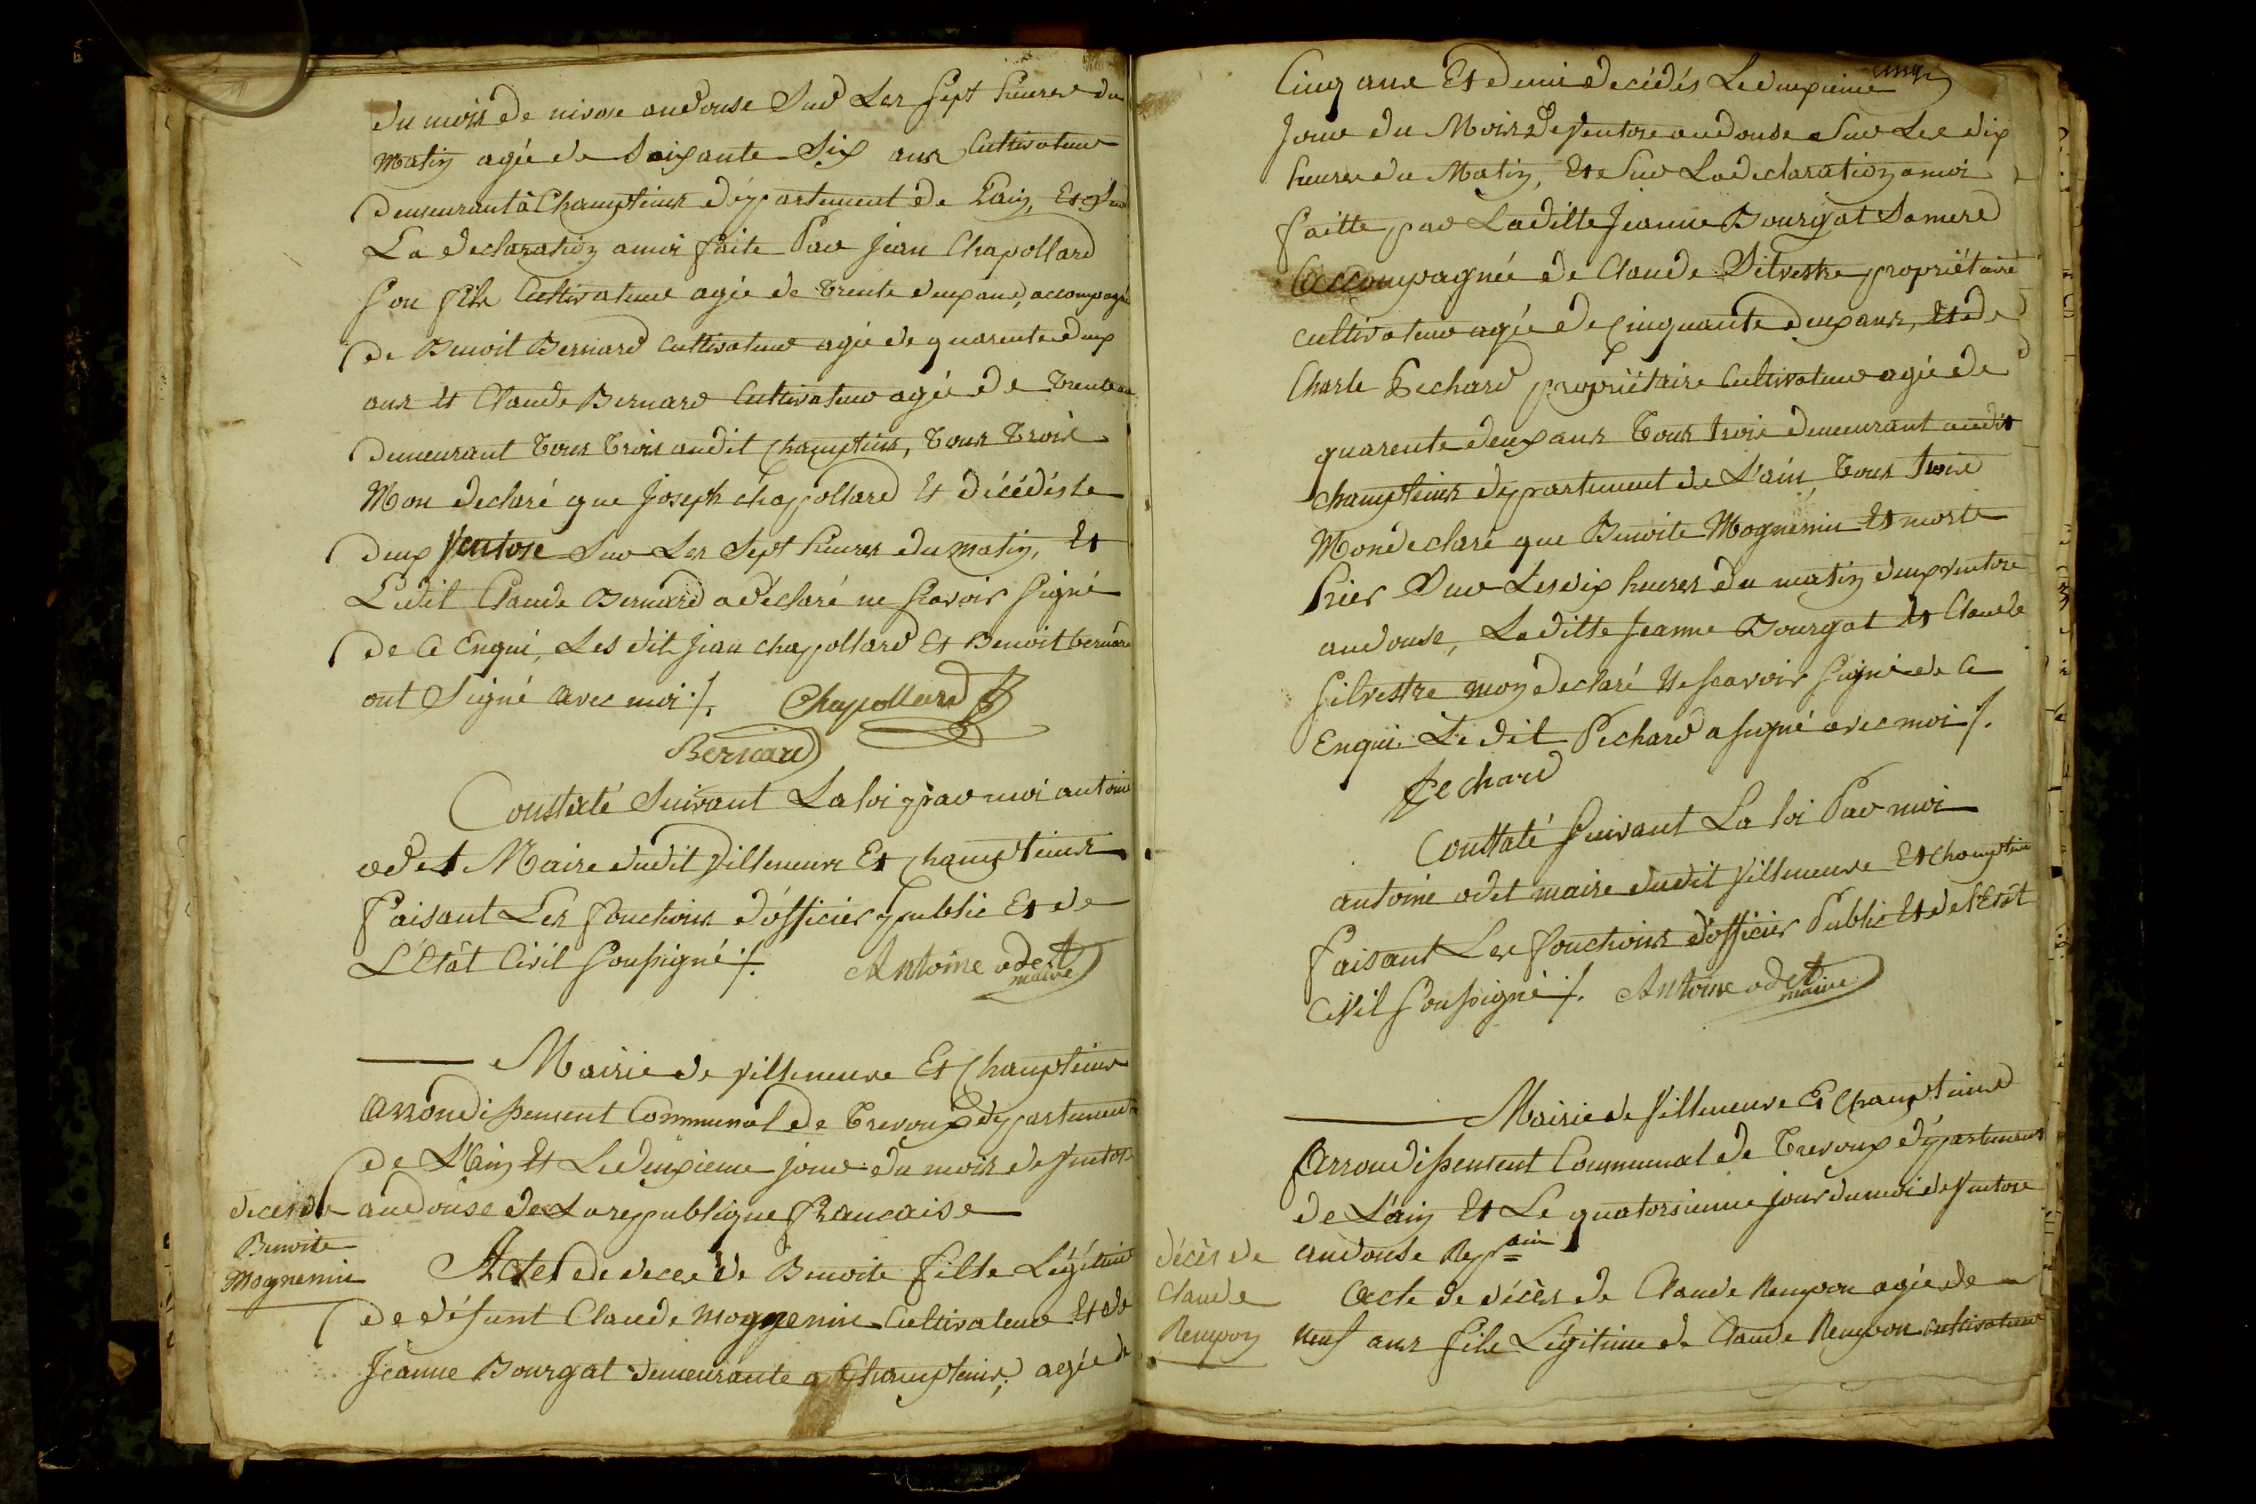 du mois de nivose andouse Sur Les sept heures du
Matin agée de Soixante Six ans Cultivateur
Demeurant à Champteins département de L'ain, Et Sur
La declaration amoi faite Par jean Chapollard
Son fils Cultivateur agée de trente deux ans, accompagné
de Benoit Bernard cultivateur agée de quarente deux
ans et Claude Bernard Cultivateur agée de trente
demeurant tous trois audit Champteins, tous trois
Mon declaré que Joseph chapollard Et décédés le
deux Ventose Sur Les Sept heures du matin, Et
Ledit Claude Bernard a déclaré ne scavoir Signé
de Ce Enqui, Les dit jean chapollard Et Benoit bernard
ont Signé avec moi ./. Chapollard
Bernard
Constaté Suivant La loi par moi antoine
odet Maire dudit Villeneuve Et Champteins
faisant Les fonctions d'officier public Et de
L'Etât Civil Soussigné ./. Antoine odet
maire
Mairie de Villeneuve Et Champteins
Arrondissement Communal de Trevoux département
de L'Ain Et Le deuxieme jour du mois de Ventose
andouse de La republique francaise
deces de
Benoite
Mognenin
Acte de deces de Benoite fille Légitime
de défunt Claude Mognenin Cultivateur Et de
Jeanne Bourgat demeurante a Champteins, agée de
Cinq ans Et demi decédés Le deuxieme
jour du Mois de Ventose andouse Sur Les dix
heures du Matin, Et Sur La declaration amoi
faitte par Laditte Jeanne Bourgat Sa mere
Accompagnée de Claude Silvestre propriétaire
cultivateur agée de Cinquante deux ans, Et de
Charle Pechard propriétaire Cultivateur agée de
quarente deux ans tous trois demeurant audit
champteins departement de L'ain tous trois
Mon declaré que Benoite Mognenin Et morte
hier Sur Les dix heures du matin deux ventose
andouse, Laditte Jeanne Bourgat Et Claude
Silvestre mon declaré Ne scavoir Signé de Ce
Enqui Ledit Pechard a signé avec moi ./.
Pechard
Conttaté Suivant La loi Par moi
antoine odet maire dudit Villeneuve Et Champtein
faisant Les fonctions d'officier Public Et de L'Etât
Civil Soussigné ./. Antoine odet
maire
Mairie de Villeneuve Et Champteins
Arrondissement Communal de Trevoux département
de L'ain Et Le quatorsieme jour du moi de Ventose
andouse Rep
décès de
Claude
Rempon
Acte de décès de Claude Rempon agée de
neuf ans fils Légitime de Claude Rempon cultivateur